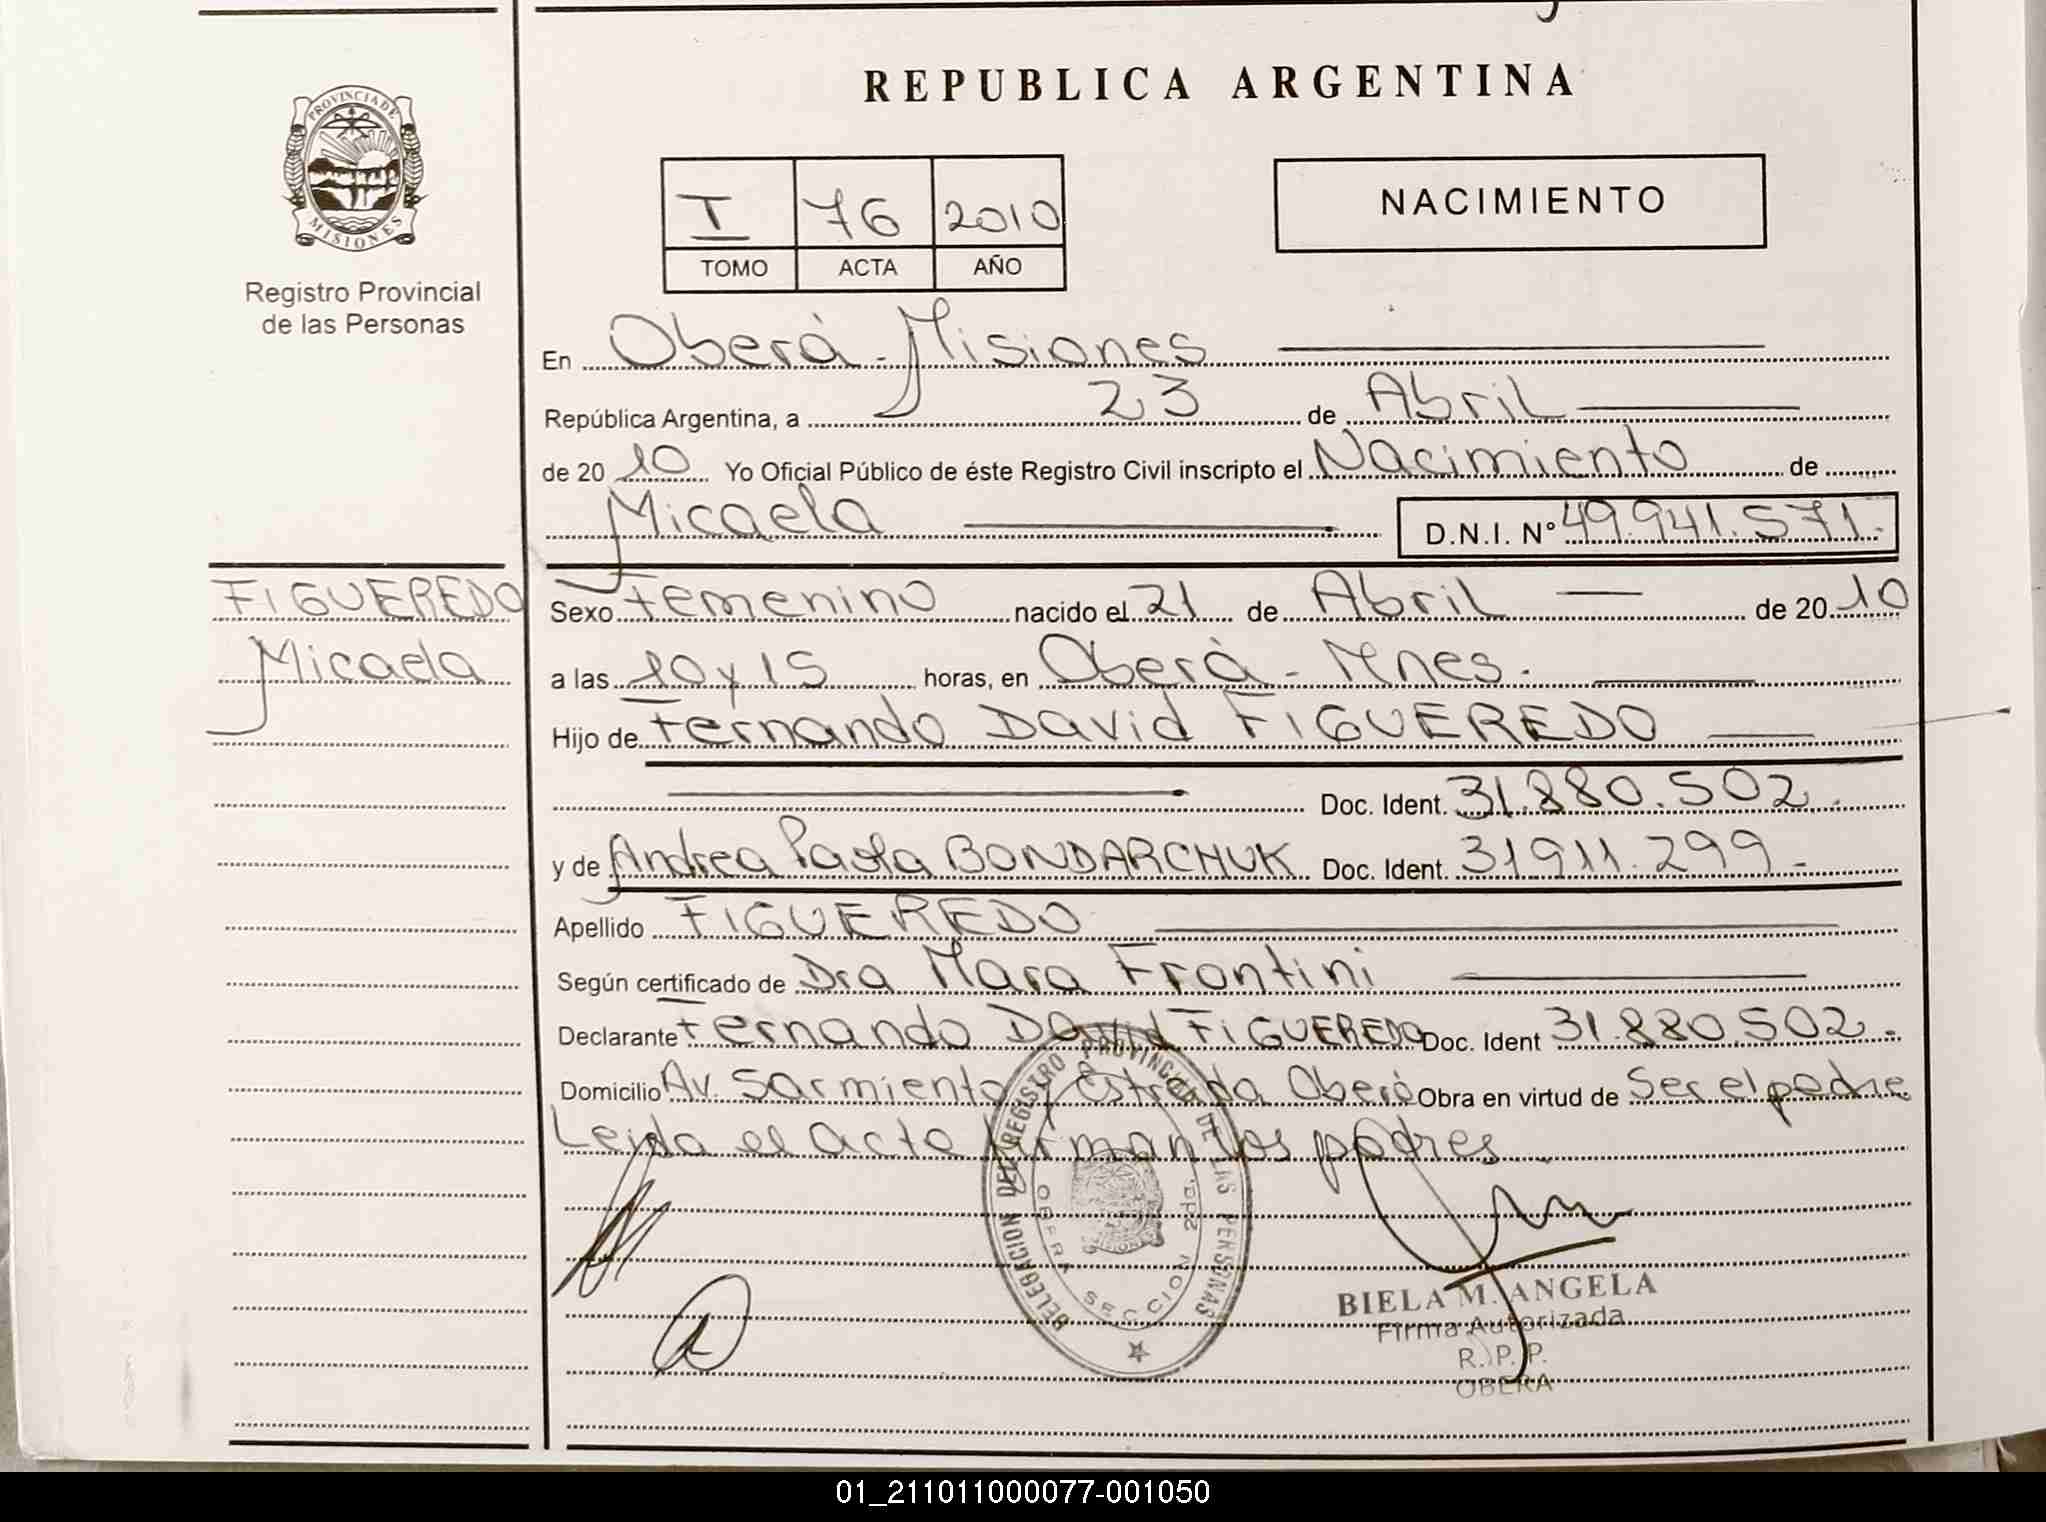 REPUBLICA ARGENTINA
PROVINCIA DE
MISIONES
Registro Provincial
de las Personas
I 76 2010
TOMO ACTA AÑO
NACIMIENTO
En Oberá - Misiones
República Argentina, a 23 de Abril
de 20 10 Yo Oficial Público de éste Registro Civil inscripto el Nacimiento de
Micaela D.N.I. Nº 49.941.571.-
FIGUEREDO
Micaela
Sexo Femenino nacido el 21 de Abril de 20 10
a las 10 y 15 horas, en Oberá - Mnes.
Hijo de Fernando David FIGUEREDO
Doc. Ident. 31.880.502.
y de Andrea Paola BONDARCHUK Doc. Ident. 31911.299.-
Apellido FIGUEREDO
Según certificado de Dra Mara Frontini
Declarante Fernando David FIGUEREDO Doc. Ident 31.880.502.-
Domicilio Av. Sarmiento y Estrada Oberá Obra en virtud de Ser el padre
Leida el acta firman los padres.
DELEGACION DEL REGISTRO PROVINCIAL DE LAS PERSONAS
OBERA SECCION 2da.
MISIONES
BIELA M. ANGELA
Firma Autorizada
R. P. P.
OBERA
01_211011000077-001050